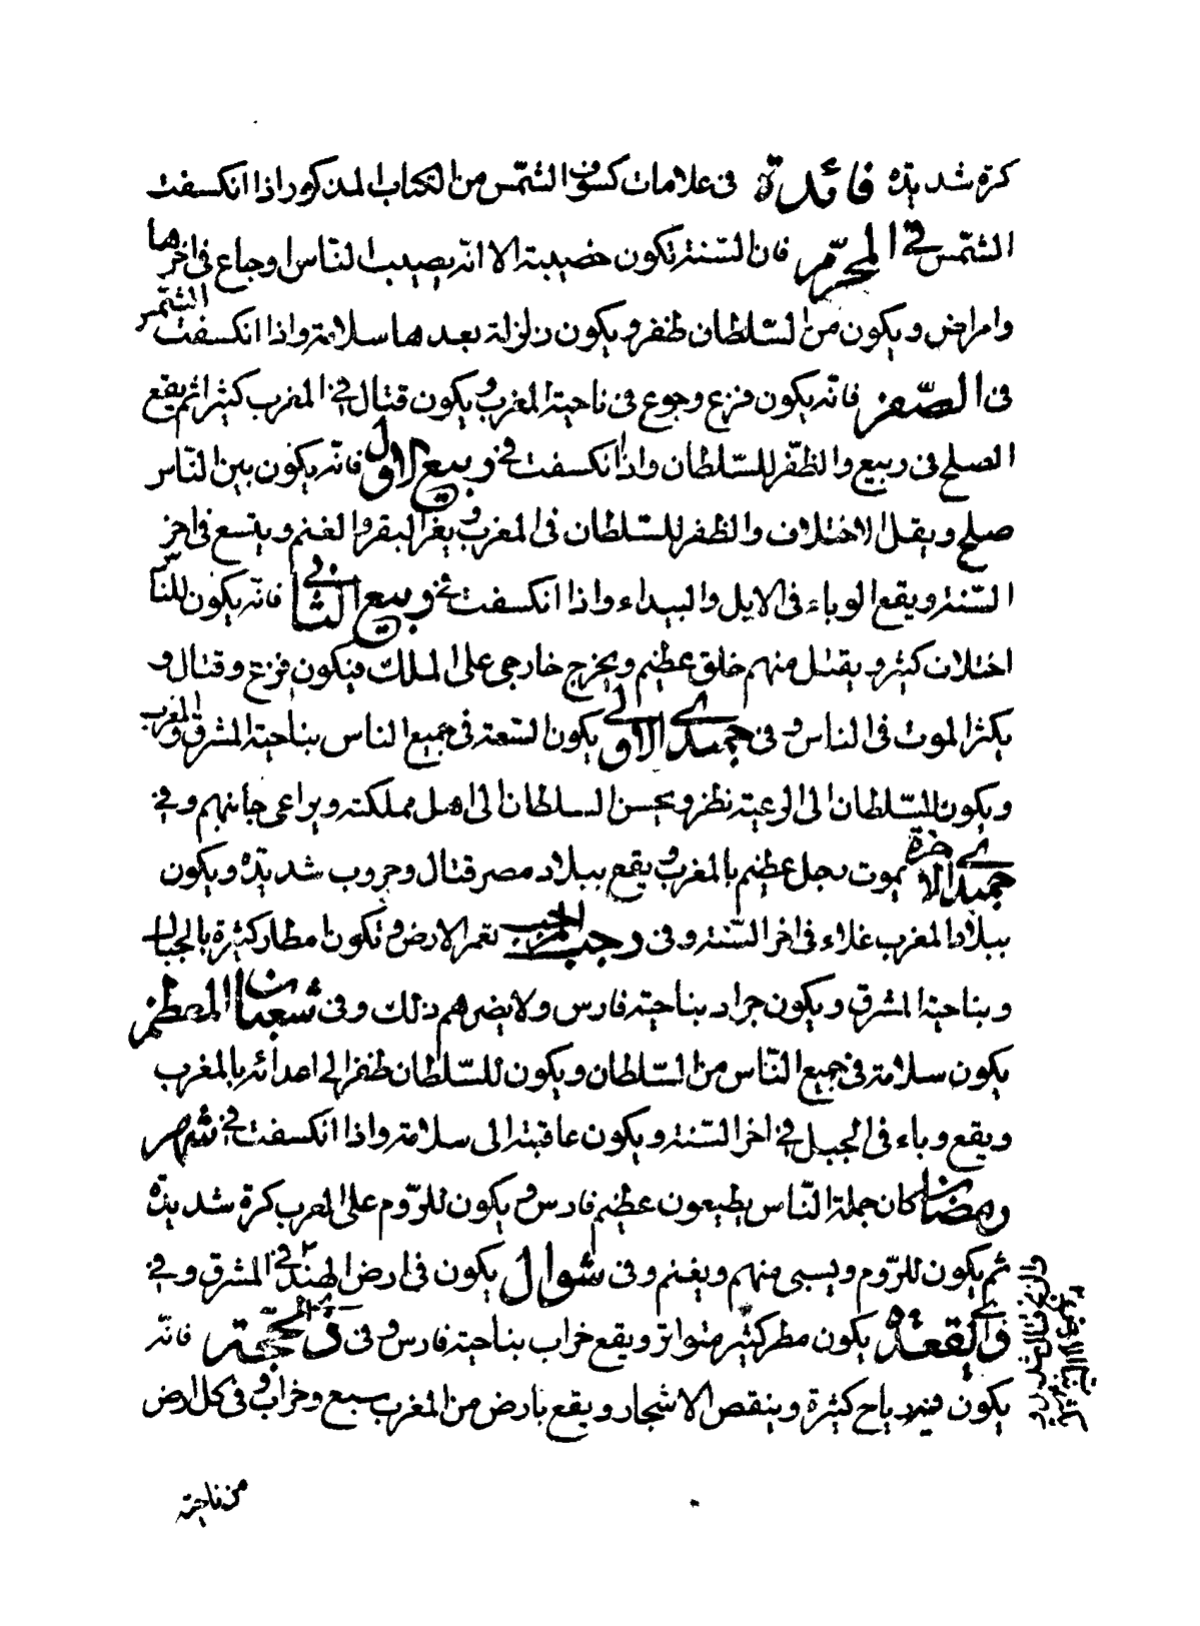 كرة شديدة فائدة فى علامات كسوف الشمس من الكتاب المذكور اذا انكسفت
الشمس فى المحرّم فان السّنة تكون خصيبة الا انّه يصيب النّاس اوجاع فى اخرها
وامراض ويكون من السّلطان ظفر ويكون زلزلة بعدها سلامة واذا انكسفت الشّمس
فى الصّفر فانّه يكون فزع وجوع فى ناحية المغرب ويكون قتال فى المغرب كثيرا ثم يقع
الصلح فى ربيع والظّفر للسّلطان واذا انكسفت فى ربيع الاوّل فانّه يكون بين النّاس
صلح ويقل الاختلاف والظفر للسّلطان فى المغرب و البقر والغنم ويتسع فى اخر
السّنة ويقع الوباء فى الابل والبيداء واذا انكسفت فى ربيع الثانى فانّه يكون للنّاس
اختلاف كثير ويقتل منهم خلق عظيم ويخرج خارجى على الملك فيكون فزع وقتال و
يكثر الموت فى الناس و فى جميدى الاولى يكون السّعة فى جميع الناس بناحية المشرق والمغرب
ويكون للسّلطان الى الرعيّة نظر ويحسن السلطان الى اهل مملكته ويراعى جانبهم وفى
جميدى الاخرة يموت رجل عظيم بالمغرب و يقع ببلاد مصر قتال وحروب شديدة ويكون
ببلاد المغرب غلاء فى اخر السّنة وفى رجب المرجب تعمر الارض و تكون امطار كثيرة بالجبال
وبناحية المشرق ويكون جراد بناحية فارس ولا يضرهم ذلك وفى شعبان المعظم
يكون سلامة فى جميع النّاس من السّلطان ويكون للسّلطان ظفر الى اعدائه بالمغرب
ويقع وباء فى الجبل فى اخر السّنة ويكون عاقبته الى سلامة واذا انكسفت فى شهر
رمضان كان جملة النّاس يطيعون عظيم فارس و يكون للرّوم على العرب كرة شديدة
ثم يكون للرّوم ويسبى منهم ويغنم وفى شوال يكون فى ارض الهند فى المشرق وفى
ذى القعدة يكون مطر كثير متواتر ويقع خراب بناحية فارس و فى ذى الحجّة فانّه
يكون فيه رياح كثيرة وينقص الاشجار ويقع بارض من المغرب سبع وخراب و فى كل ارض
من ناحية